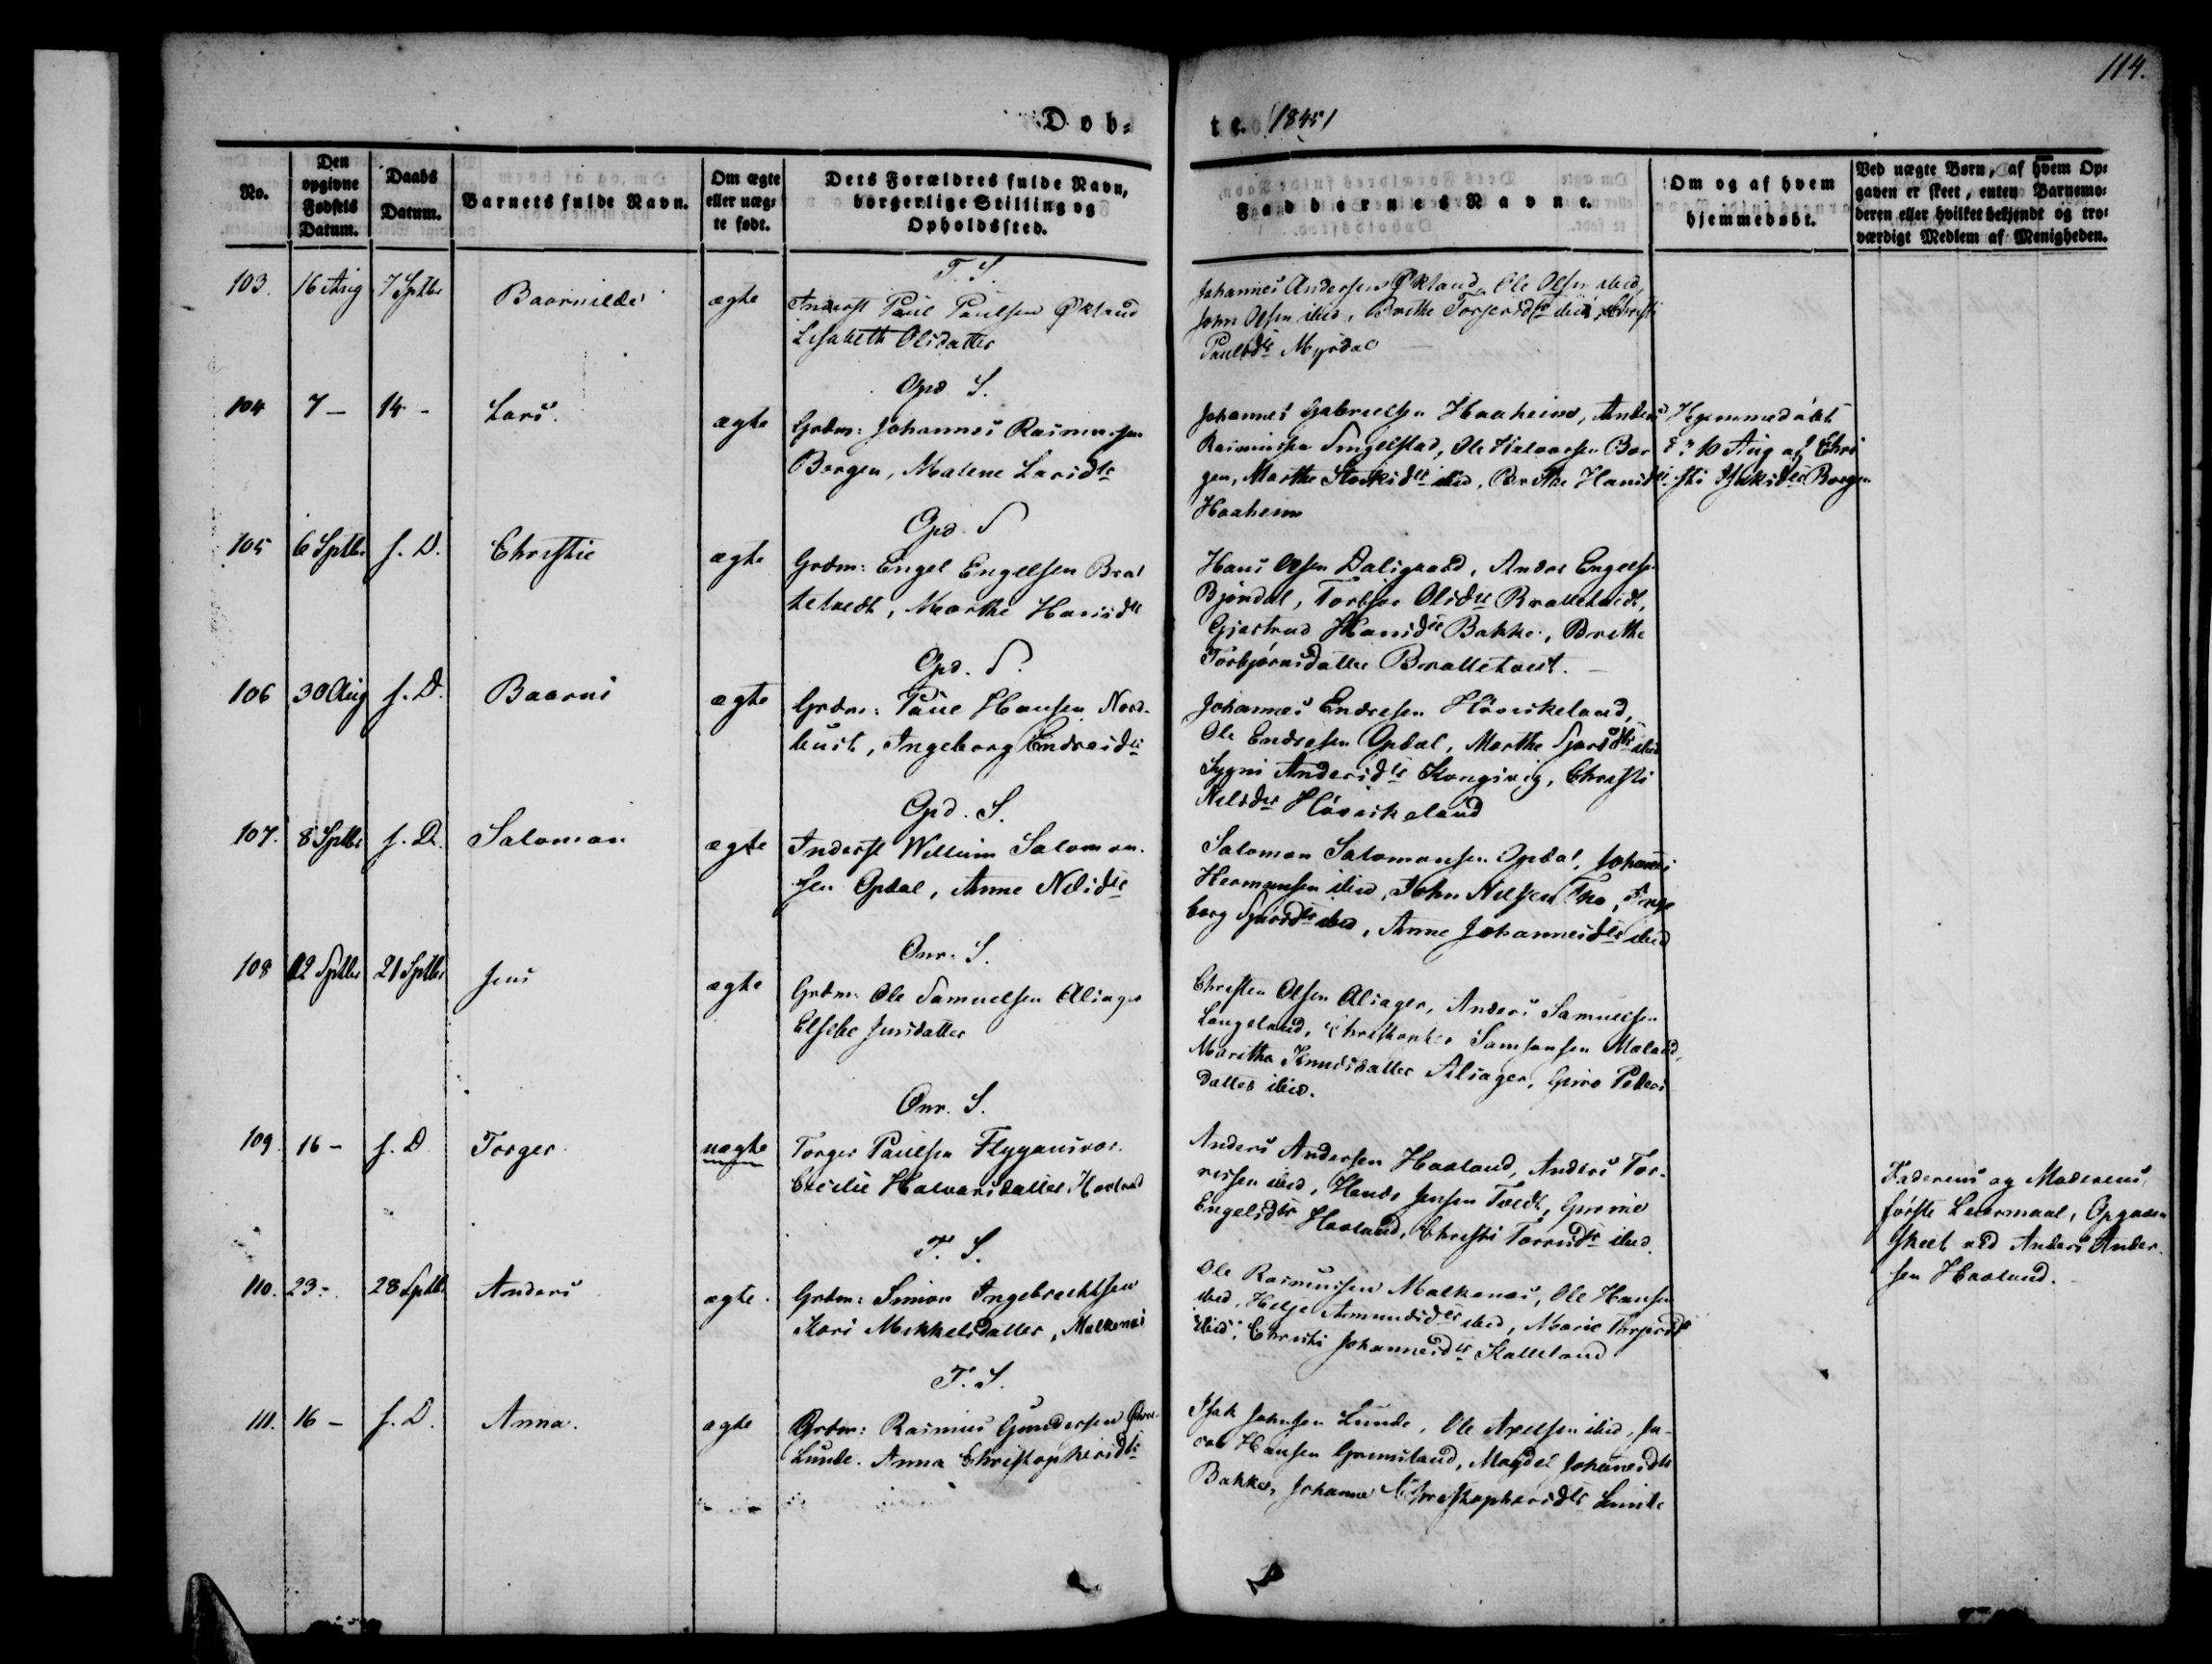 114.
Døb=
te. 1845
No.
Den opgivne Fødsels Datum.
Daabs Datum.
Barnets fulde Navn.
Om ægte eller uægte født.
Dets Forældres fulde Navn, borgerlige Stilling og Opholdssted.
Faddernes Navne.
Om og af hvem hjemmedøbt.
Ved uægte Børn, af hvem Opgaven er skeet, enten Barnemoderen eller hvilket bekjendt og troværdigt Medlem af Menigheden.
T. S.
103. 16 Aug 7 Sptbr Baarnilde ægte
Inderst Paul Paulsen Økland
Lisabeth Olsdatter
Johannes Andersen Økland, Ole Olsen ibid,
John Olsen ibid, Brithe Torgersdtr ibid, Christi
Paulsdtr Myrdal
Opd S.
104 7 - 14 - Lars. ægte
Grdm: Johannes Rasmussen
Borgen, Malene Larsdtr
Johannes Gabrielsen Haaheim, Anders
Rasmussen Engelstad, Ole Halvorsen Bor
gen, Marthe ibid, Brithe Hansdtr
Haaheim
Hjemmedøbt
10 Aug af Chri
sti Borgen
Opd. S
105 6 Sptbr s. D. Christie ægte
Grdm: Engel Engelsen Brat
tetvedt, Marthe Hansdtr
Hans Olsen Dalsgaard, Anders Engelsen
Bjøndal, Torbjør Olsdtr Brattetvedt,
Gjertrud Hansdtr Bakke, Brithe
Torbjørnsdatter Brattetvedt.
Opd. S.
106 30 Aug s. D. Baarni ægte
Grdm: Paul Hansen Nord-
huus, Ingeborg Endresdtr
Johannes Endresen Høviskeland,
Ole Endresen Opdal, Marthe ibid
Sygni Andersdtr Kongsvig, Christi
Nilsdtr Høviskeland
Opd. S.
107. 8 Sptbr s. D. Salomon ægte
Inderst Willum Salomon-
sen Opdal, Anne Nilsdtr
Salomon Salomonsen Opdal, Johannes
Hermansen ibid, John Nilsen, Inge
borg ibid, Anne Johannesdtr ibid
Onr. S.
108 12 Sptbr 21 Sptbr Jens ægte
Grdm. Ole Samuelsen Alsager
Elsebe Jensdatter
Christen Olsen Alsager, Anders Samuelsen
Langeland, Christopher Samsonsen Mæland,
Maritha Knudsdatter Alsager, Peders
datter ibid.
Onr. S.
109. 16 - s. D. Torger uægte
Torger Paulsen Flygansvær
Cecilie Halvarsdatter Haaland
Anders Andersen Haaland, Anders Tor-
ressen ibid, Jensen Tvedt,
Engelsdtr Haaland, Christi Torrisdtr ibid.
Faderens og Moderens
første Leiermaal, Opgaven
skeet ved Anders Ander-
sen Haaland.
T. S.
110. 23 - 28 Sptbr Anders ægte.
Grdm: Simon Ingebrechtsen
Kari Mikkelsdatter, Malkenes
Ole Rasmussen Malkenes, Ole Hansen
ibid, Helje Amundsdtr ibid, Marie
ibid, Christi Johannesdtr Kalleland
T. S.
111. 16 - s. D. Anna. ægte
Grdm: Rasmus Gundersen
Lunde. Anna Christophersdtr
Isak Johnsen Lunde, Ole Axelsen ibid, Ja-
cob Hansen Grimsland, Magdel Johannesdtr
Bakke, Johanne Christophersdtr Lunde